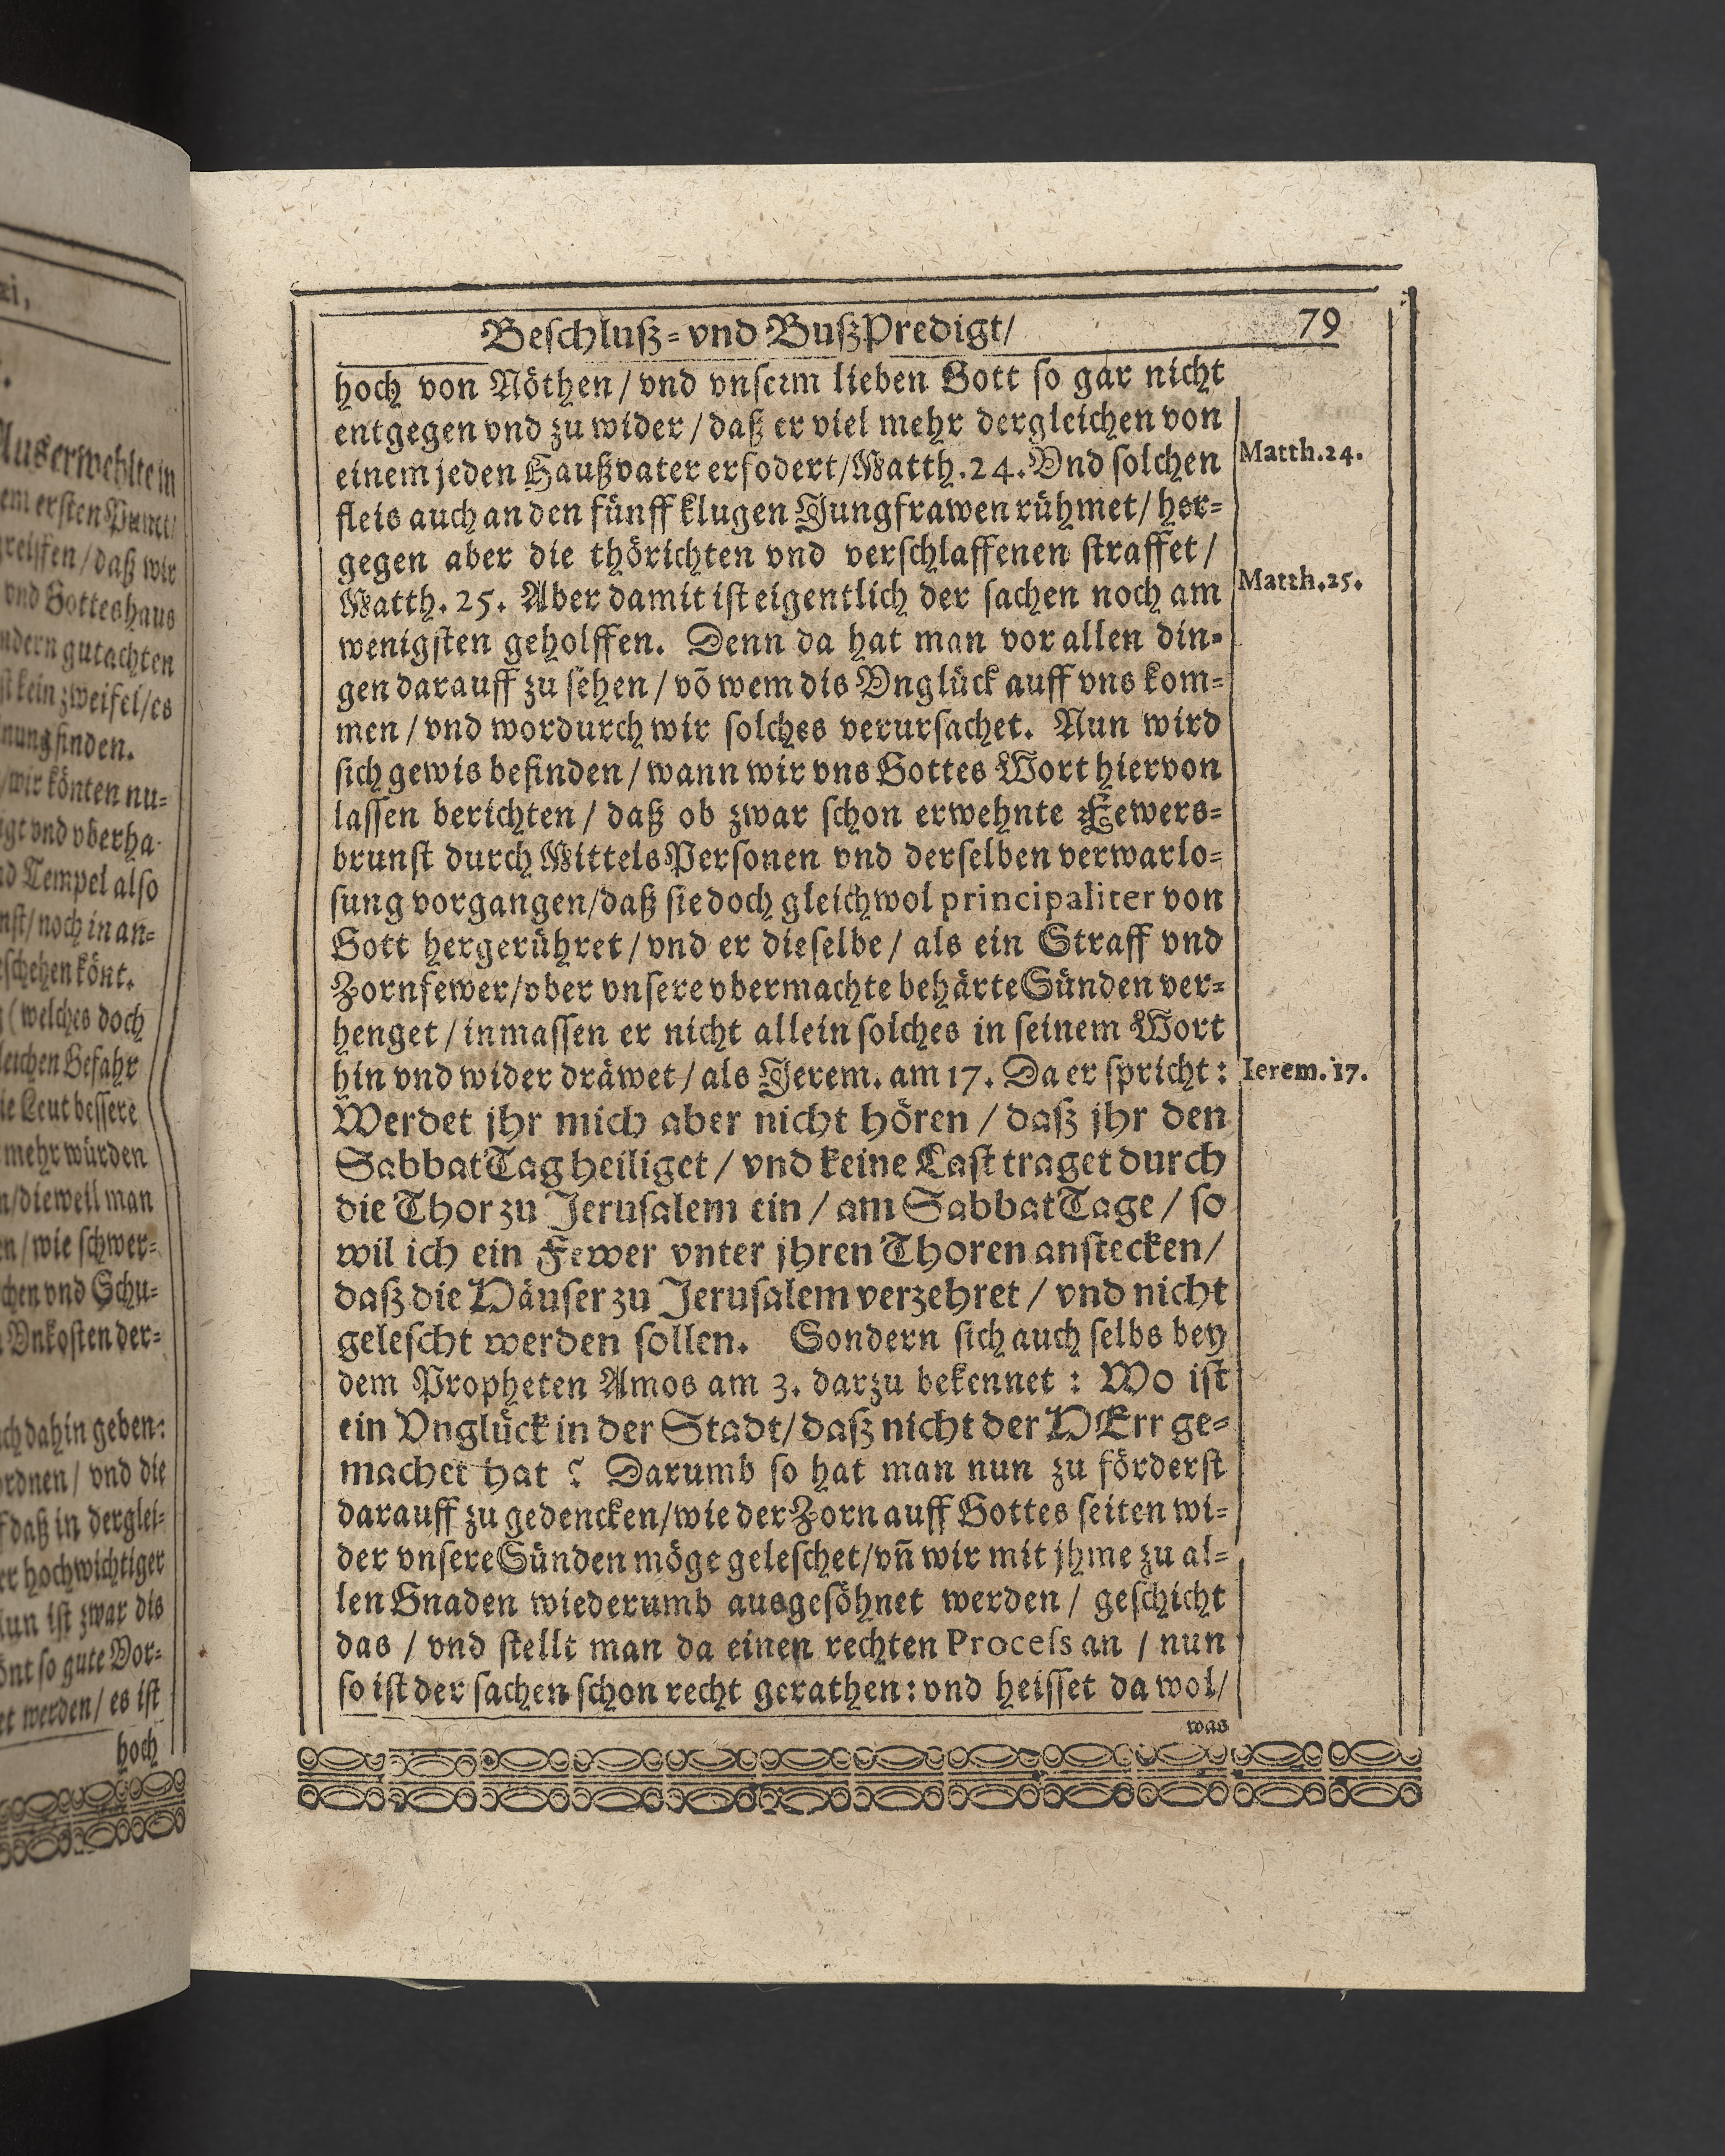 Beschluß-vnd BußPredigt/ 79
hoch von Nöthen/vnd vnserm lieben Gott so gar nicht
entgegen vnd zu wider/daß er viel mehr dergleichen von
einem jeden Haußvater erfodert/Matth.24.Vnd solchen
fleis auch an den fünff klugen Jungfrawen rühmet/her-
gegen aber die thörichten vnd verschlaffenen straffet/
Matth. 25. Aber damit ist eigentlich der sachen noch am
wenigsten geholffen. Denn da hat man vor allen din-
gen darauff zu sehen/võ wem dis Vnglück auff vns kom-
men/vnd wordurch wir solches verursachet. Nun wird
sich gewis befinden/wann wir vns Gottes Wort hiervon
lassen berichten/daß ob zwar schon erwehnte Fewers-
brunst durch MittelsPersonen vnd derselben verwarlo-
sung vorgangen/daß sie doch gleichwol principaliter von
Gott hergerühret/vnd er dieselbe/als ein Straff vnd
Zornfewer/vber vnsere vbermachte behärte Sünden ver-
henget/inmassen er nicht allein solches in seinem Wort
hin vnd wider dräwet/als Jerem. am 17. Da er spricht:
Werdet jhr mich aber nicht hören/daß jhr den
SabbatTag heiliget/vnd keine Last traget durch
die Thor zu Jerusalem ein/am SabbatTage/so
wil ich ein Fewer vnter jhren Thoren anstecken/
daß die Häuser zu Jerusalem verzehret/vnd nicht
gelescht werden sollen. Sondern sich auch selbs bey
dem Propheten Amos am 3. darzu bekennet: Wo ist
ein Vnglück in der Stadt/daß nicht der HErr ge-
machet hat? Darumb so hat man nun zu förderst
darauff zu gedencken/wie der Zorn auff Gottes seiten wi-
der vnsere Sünden möge geleschet/vñ wir mit jhme zu al-
len Gnaden wiederumb ausgesöhnet werden/geschicht
das/vnd stellt man da einen rechten Process an/nun
so ist der sachen schon recht gerathen:vnd heisset da wol/
was
Matth.24.
Matth.25.
Ierem.17.
Auserwehlte in
ersten Punct/
daß wir
vnd Gotteshaus
gutachten
kein zweifel/es
finden.
/wir könten nu-
vnd vberha-
Tempel also
/noch in an-
könt.
(welches doch
Gefahr
Leut bessere
mehr würden
/dieweil man
/wie schwer-
vnd Schu-
Vnkosten der-
dahin geben:
/vnd die
daß in derglei-
hochwichtiger
ist zwar dis
so gute Vor-
werden/es ist
hoch